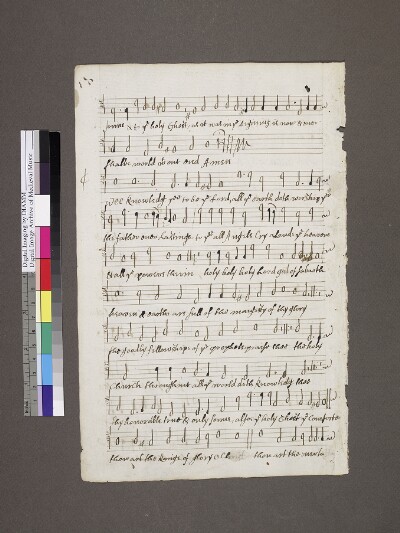 sonne & to yͤ holy Ghost, as it was in yͤ beginning is now & ever
shalbe world without end Amen
wee knowledg yͤᵉ to be yͤ Lord, all yͤ earth doth worship yͤᵉ
the father everlastinge to yͤᵉ all Angells Cry aloud yͤ heavens
& all yͤ powers therin holy holy holy Lord god of saboth
heaven & earthe are full of the maiesty of thy glory
the goodly fellowshipe of yͤ prophets praise thee the holy
Church throughout all yͤ world doth knowledg thee
thy honorable true & only sonne, also yͤ holy Ghost yͤ Comforter
thou art the Kinge of glory thou art the
Digital Imaging by DIAMM
Digital Image Archive of Medieval Music